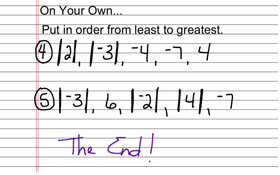 On Your Own...
Put in order from least to greatest.
④ |2|, |⁻3|, ⁻4, ⁻7, 4
⑤ |⁻3|, 6, |⁻2|, |4|, ⁻7
The End!